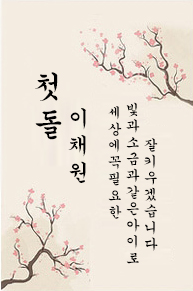 첫돌
이채원
세상에 꼭 필요한
빛과 소금과 같은 아이로
잘 키우겠습니다